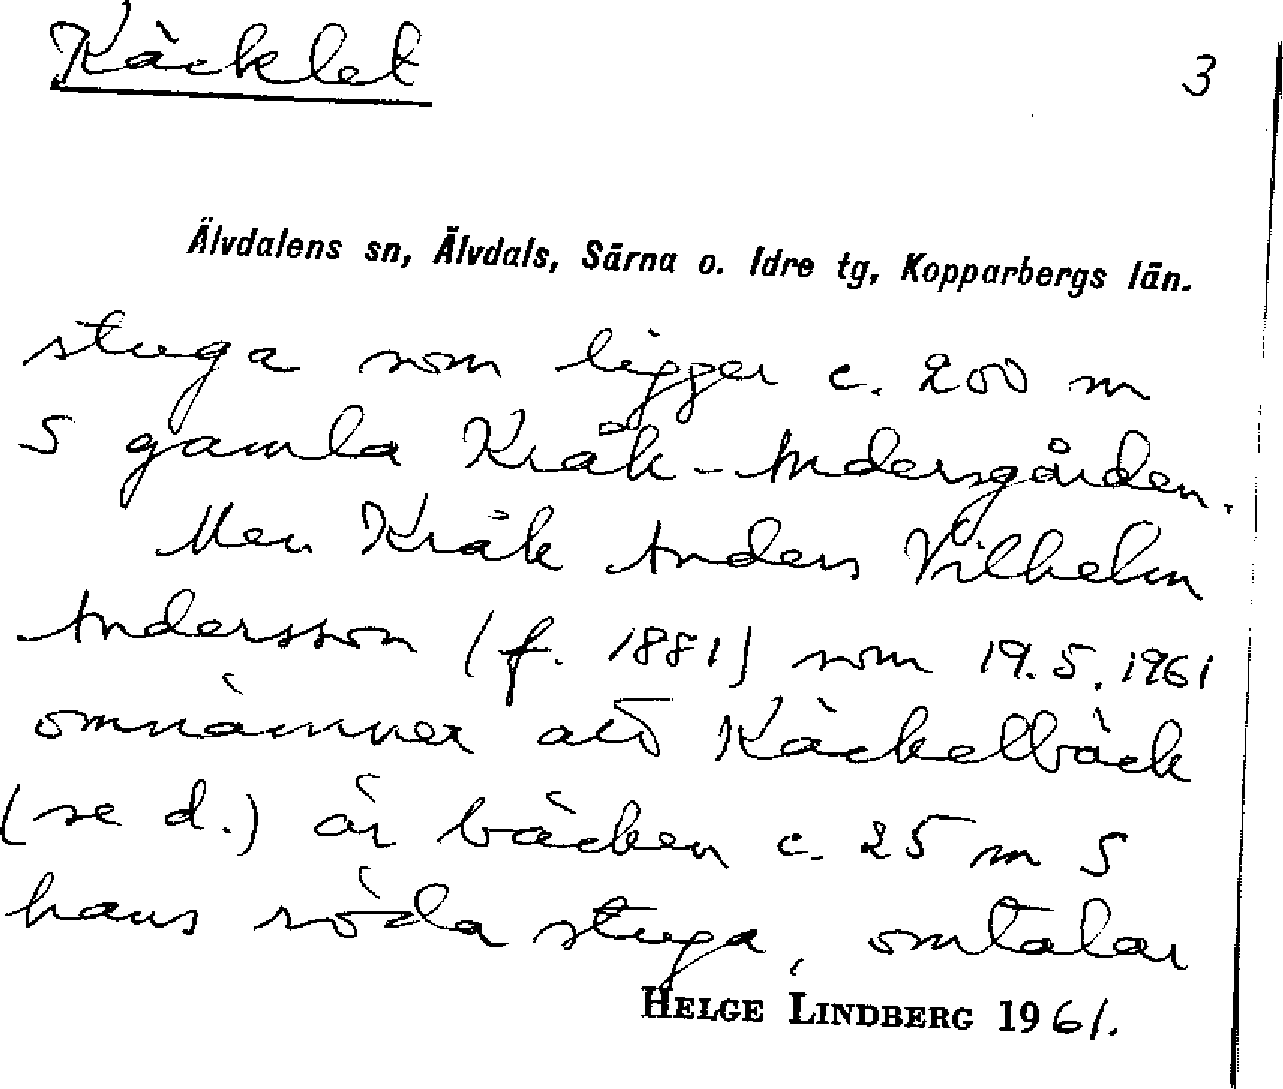 Käcklet
3
Älvdalens sn, Älvdals, Särna o. Idre tg, Kopparbergs län.
stuga som ligger c. 200 m
S gamla Kråk-Andersgården.
Men Kråk Anders Vilhelm
Andersson (f. 1881) som 19.5.1961
omnämner att Käckelbäck
(se d.) är bäcken c. 25 m S
hans röda stuga, omtalar
HELGE LINDBERG 1961.